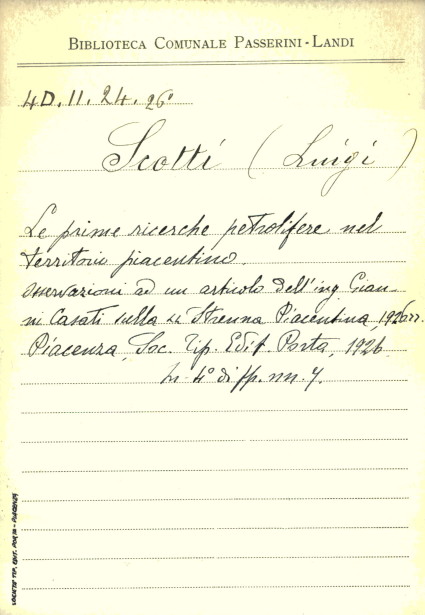 BIBLIOTECA COMUNALE PASSERINI-LANDI
4D.11.24.26¹
Scotti (Luigi)
Le prime ricerche petrolifere nel
territorio piacentino.
osservazioni ad un articolo dell'ing Gian-
ni Casati sulla Strenna Piacentina, 1926
Piacenza, Soc. Tip. Edit. Porta, 1926
in 4° di pp. nn. 7.
SOCIETÀ TIP. EDIT. PORTA - PIACENZA